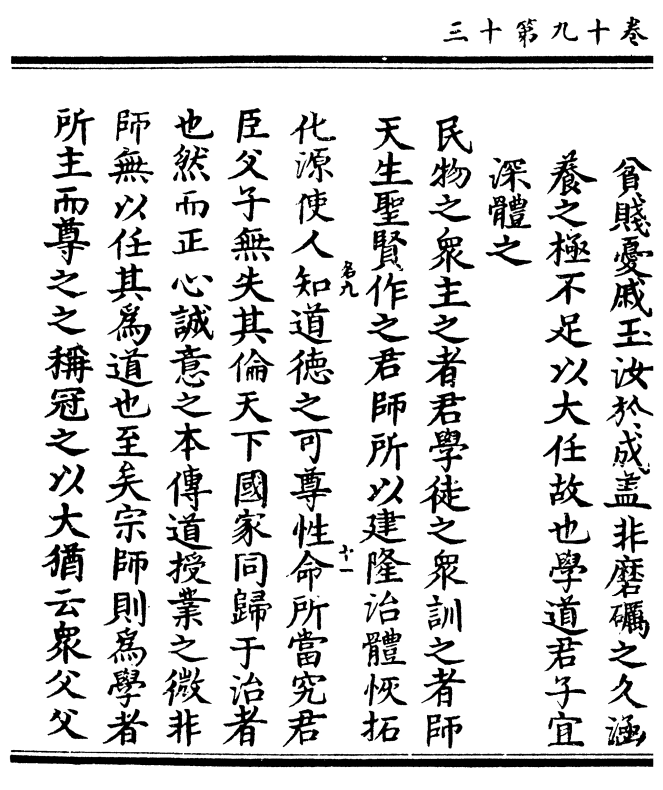 三十第九十卷
貧賤憂戚玉汝於成盖非磨礪之久涵
養之極不足以大任故也學道君子宜
深體之
民物之衆主之者君學徒之衆訓之者師
天生聖賢作之君師所以建隆治體恢拓
名九
十一
化源使人知道德之可尊性命所當究君
臣父子無失其倫天下國家同歸于治者
也然而正心誠意之本傳道授業之微非
師無以任其爲道也至矣宗師則爲學者
所主而尊之之稱冠之以大猶云衆父父